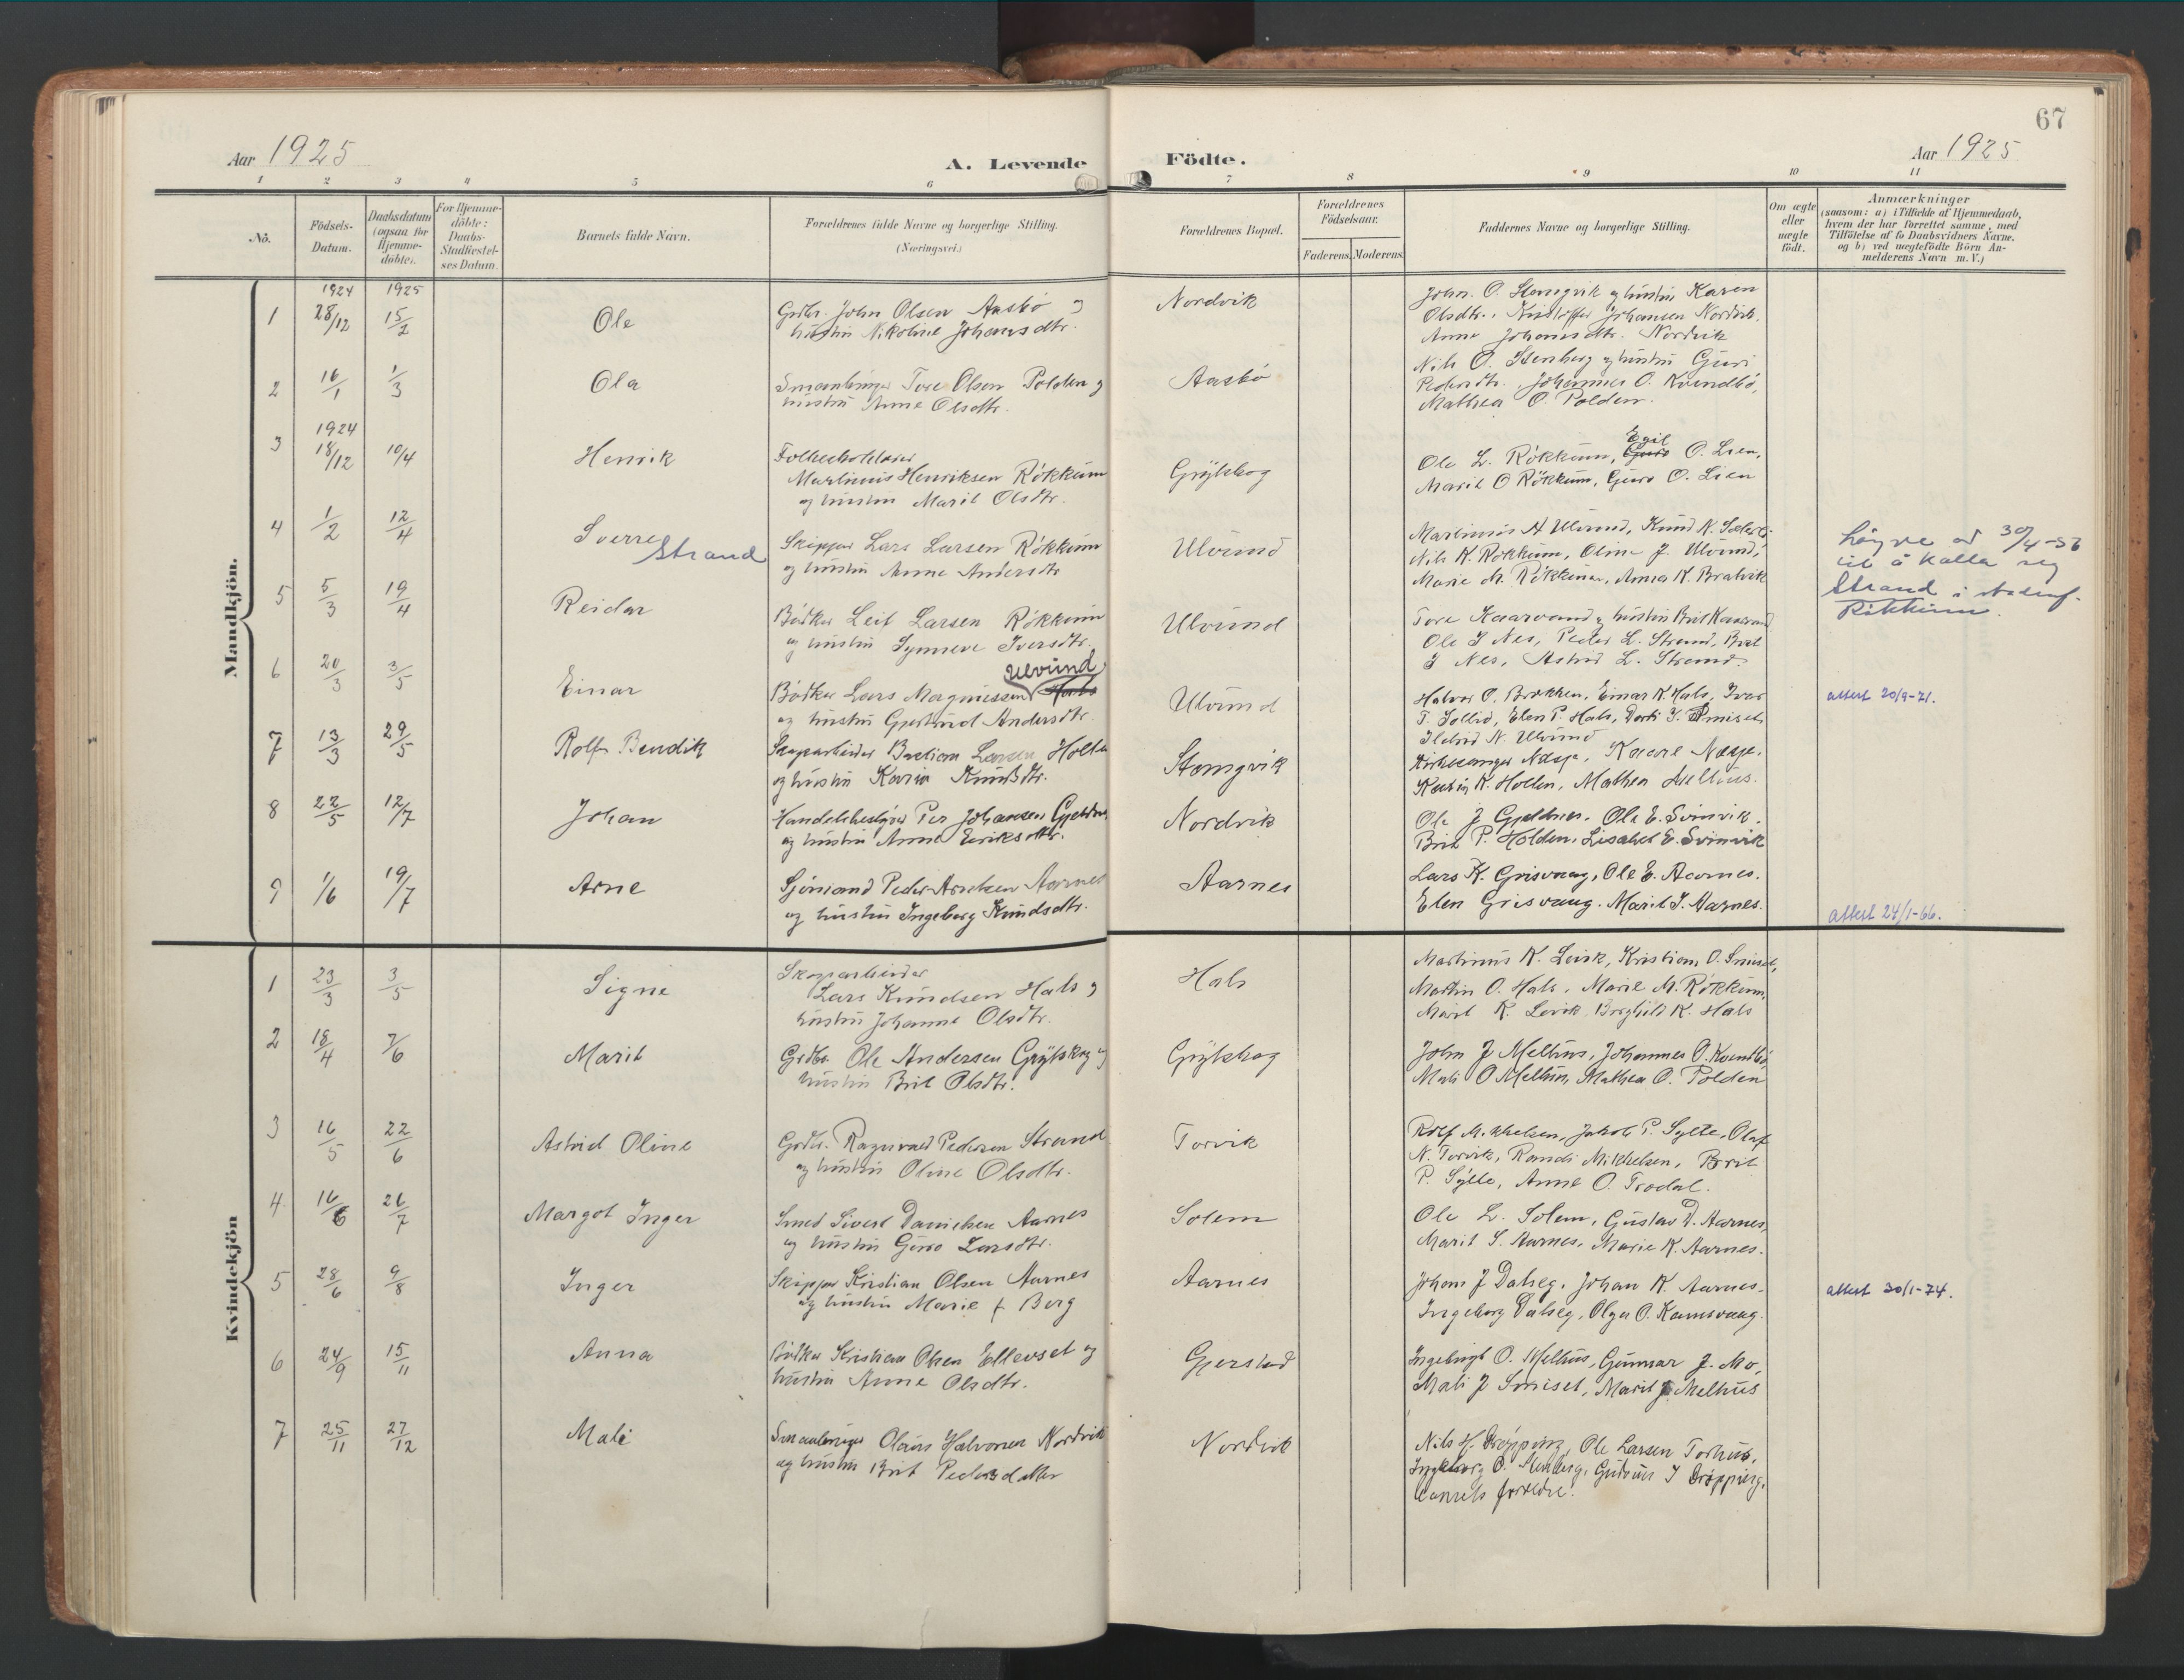 67
Aar 1925
A. Levende Födte.
Aar 1925
1 2 3 4 5 6 7 8 9 10 11
No.
Födsels-Datum.
Daabsdatum (ogsaa for Hjemme-döbte).
For Hjemme-döbte: Daabs-Stadfæstel-ses Datum.
Barnets fulde Navn.
Forældrenes fulde Navne og borgerlige Stilling. (Næringsvei.)
Forældrenes Bopæl.
Forældrenes Födselsaar.
Faderens. Moderens.
Faddernes Navne og borgerlige Stilling.
Om ægte eller uægte födt.
Anmærkninger
(saasom: a) i Tilfælde af Hjemmedaab,
hvem der har forrettet samme, med
Tilföielse af to Daabsvidners Navne,
og b) ved uægtefödte Börn An-
melderens Navn m. V.)
Mandkjön.
1924 1925
1 28/12 15/2 Ole
Grdbr. John Olsen Aasbö og
hustru Nikoline Johansdtr.
Nordvik
John. O. Stomgvik og hustru Karen
Olsdtr., Kristoffer Johansen Nordvik.
Anne Johansdtr. Nordvik
2 16/1 1/3 Ola
Smaabruger Tore Olsen Polden og
hustru Anne Olsdtr.
Aasbö
Nils O. Stenberg og hustru Guri
Pedersdtr., Johannes O. Kvendbö,
Mathea O. Polden.
1924
3 18/12 10/4 Henrik
Martinus Henriksen Rökkum
og hustru Marit Olsdtr.
Grytskog
Egil
Ole L. Rökkum, Guro O. Lien,
Marit O Rökkum, Guro O. Lien
4 1/2 12/4 Sverre
Strand
Skipper Lars Larsen Rökkum
og hustru Anne Andersdtr
Ulvund
Martinus A Ulvund, Knud N.
Nils K. Rökkum, Oline J. Ulvund,
Marie M. Rökkum, Anna K. Bratvik
Löyve av 30/4-56
til å kalla seg
Strand i stadenf.
Rökkum.
5 5/3 19/4 Reidar
Bödker Leif Larsen Rökkum
og hustru Synneve Iversdtr.
Ulvund
Tore Kaarvand og hustru Brit Kaarvand
Ole I Nes, Peder L. Strand, Brit
I Nes, Astrid L. Strand.
6 20/3 3/5 Einar
Ulvund
Bödker Lars Magnussen Hals
og hustru Gjertrud Andersdtr.
Ulvund
Halvor O. Brekken, Einar K. Hals, Iver
T. Sollid, Elen P. Hals,
N. Ulvund
attest 20/9-71.
7 13/3 29/5 Rolf Bendik
Skogarbeider Bastian Larsen Holten
og hustru Karin Knudsdtr.
Stomgvik
Kirkesanger Næsje, Kaare Næsje.
K. Hollen, Mathea Melhus.
8 22/5 12/7 Johan
Handelsbestyrer Per Johansen
og hustru Anne Eriksdtr.
Nordvik
Ole J. Ole E. Svinvik.
Brit P. Holden. Lisabet E. Svinvik
9 1/6 19/7 Arne
Sjömand Peder Arntsen Aarnes
og hustru Ingeborg Knudsdtr.
Aarnes
Lars K. Grisvaag, Ole E. Aarnes.
Elen Grisvaag. Marit I. Aarnes.
attest 24/1-66.
Kvindekjön
1 23/3 3/5 Signe
Skogarbeider
Lars Knudsen Hals og
hustru Johanne Olsdtr.
Hals
Martinus K. Leivk, Kristian O. Smiset,
Martin O. Hals, Marie M. Rökkum,
Marit K. Levik, Borghild K. Hals
2 18/4 7/6 Marit
Grdbr. Ole Andersen Grytskog og
hustru Brit Olsdtr.
Grytskog
John J Melhus, Johannes O. Kvendbö,
Mali O Melhus, Mathea O. Polden
3 16/5 22/6 Astrid Oline
Grdbr. Ragnvald Pedersen Strand
og hustru Oline Olsdtr.
Torvik
Rolf Mikkelsen, Jakob P. Sylte, Olaf
N. Torvik, Randi Mikkelsen, Brit
P. Sylte, Anne O. Trodal.
4 16/6 26/7 Margot Inger
Smed Sivert Danielsen Aarnes
og hustru Guro Larsdtr.
Solem
Ole L. Solem, Gustav D. Aarnes,
Marit S. Aarnes, Marie K. Aarnes.
5 28/6 9/8 Inger
Skipper Kristian Olsen Aarnes
og hustru Marie f Berg
Aarnes
Johan J Dalseg, Johan K. Aarnes.
Ingeborg Dalseg, Olga O. Ramsvaag.
attest 30/1-74.
6 24/9 15/11 Anna
Bödker Kristian Olsen Ellevset og
hustru Anne Olsdtr.
Gjerstad
Ingebrigt O. Melhus, Gunnar J. Mo,
Mali J Smiset, Marit J Melhus
7 25/11 27/12 Mali
Smaabruger Olaus Halvorsen Nordvik
og hustru Brit Pedersdatter
Nordvik
Nils H. Dröpping, Ole Larsen Torhus,
Ingeborg O. Stenberg, Gudrun I Dröpping,
barnets foreldre.